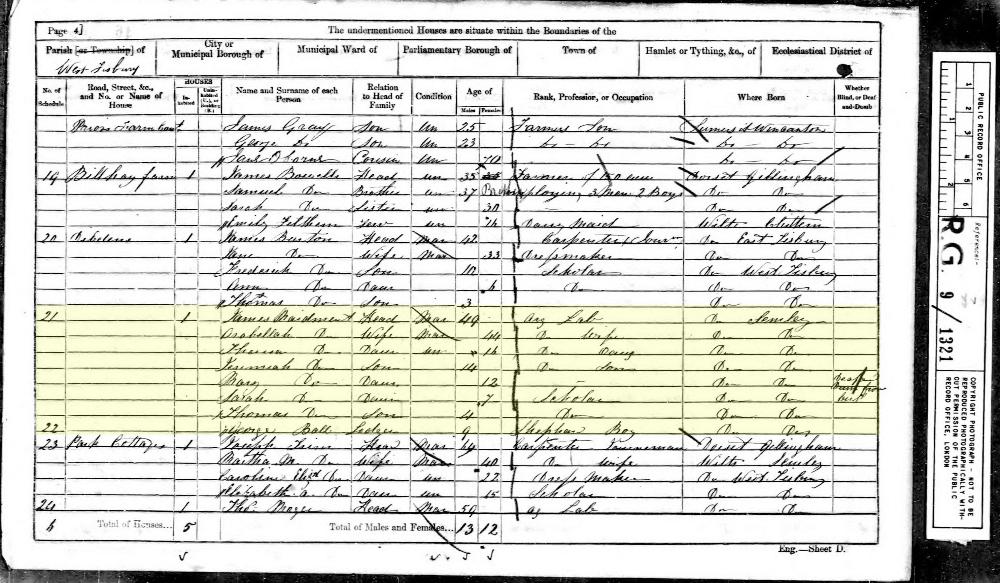 Page 4]
The undermentioned Houses are situate within the Boundaries of the
Parish [or Township] of
City or Municipal Borough of
Municipal Ward of
Parliamentary Borough of
Town of
Hamlet or Tything, &c., of
Ecclesiastical District of
West Tisbury
No. of Schedule
Road, Street, &c., and No. or Name of House
HOUSES
Inhabited
Uninhabited (U.), or Building (B.)
Name and Surname of each Person
Relation to Head of Family
Condition
Age of
Males
Females
Rank, Profession, or Occupation
Where Born
Whether Blind, or Deaf-and-Dumb
James Gray Son Un 25 Farmers Son
George Do Son Un 23 Do Do Do Do
Cousin Un 70 Do Do
19 Farm 1 James Head Un 35 Farmer of Dorset Gillingham
Samuel Do Brother Un 37 employing 3 Men 2 Boys Do Do
Sarah Do Sister Un 30 Do Do
Emily Serv Un 16 Dairy Maid Wilts
20 1 James Burton Head Mar 42 Carpenter Do East Tisbury
Jane Do Wife Mar 33 Dressmaker Do Do
Frederick Do Son 10 Scholar Do West Tisbury
Ann Do Daur 6 Do Do Do
Thomas Do Son 3 Do Do
21 1 James Maidment Head Mar 49 Ag Lab Do Semley
Arabellah Do Wife Mar 44 Do Wife Do Do
Do Daur Un 16 Do Daug Do Do
Jeremiah Do Son 14 Do Son Do Do
Mary Do Daur 12 Do Do Deaf
Sarah Do Daur 7 Scholar Do Do
Thomas Do Son 4 Do Do Do
22 George Ball Lodger 9 Shepherd Boy Do Do
23 Park Cottages 1 Joseph Head Mar 49 Carpenter Journeyman Dorset Gillingham
Martha M. Do Wife Mar 40 Do Wife Wilts Semley
Caroline Do Daur Un 22 Dress maker Do West Tisbury
Elizabeth A. Do Daur Un 15 Scholar Do Do
24 1 Thos. Head Mar 59 Ag Lab Do Do
6 Total of Houses... 5 Total of Males and Females... 13 12
Eng.—Sheet D.
PUBLIC RECORD OFFICE
1 2 3 4 5 6
Reference:-
R.G. 9/1321
COPYRIGHT PHOTOGRAPH - NOT TO BE REPRODUCED PHOTOGRAPHICALLY WITHOUT PERMISSION OF THE PUBLIC RECORD OFFICE, LONDON